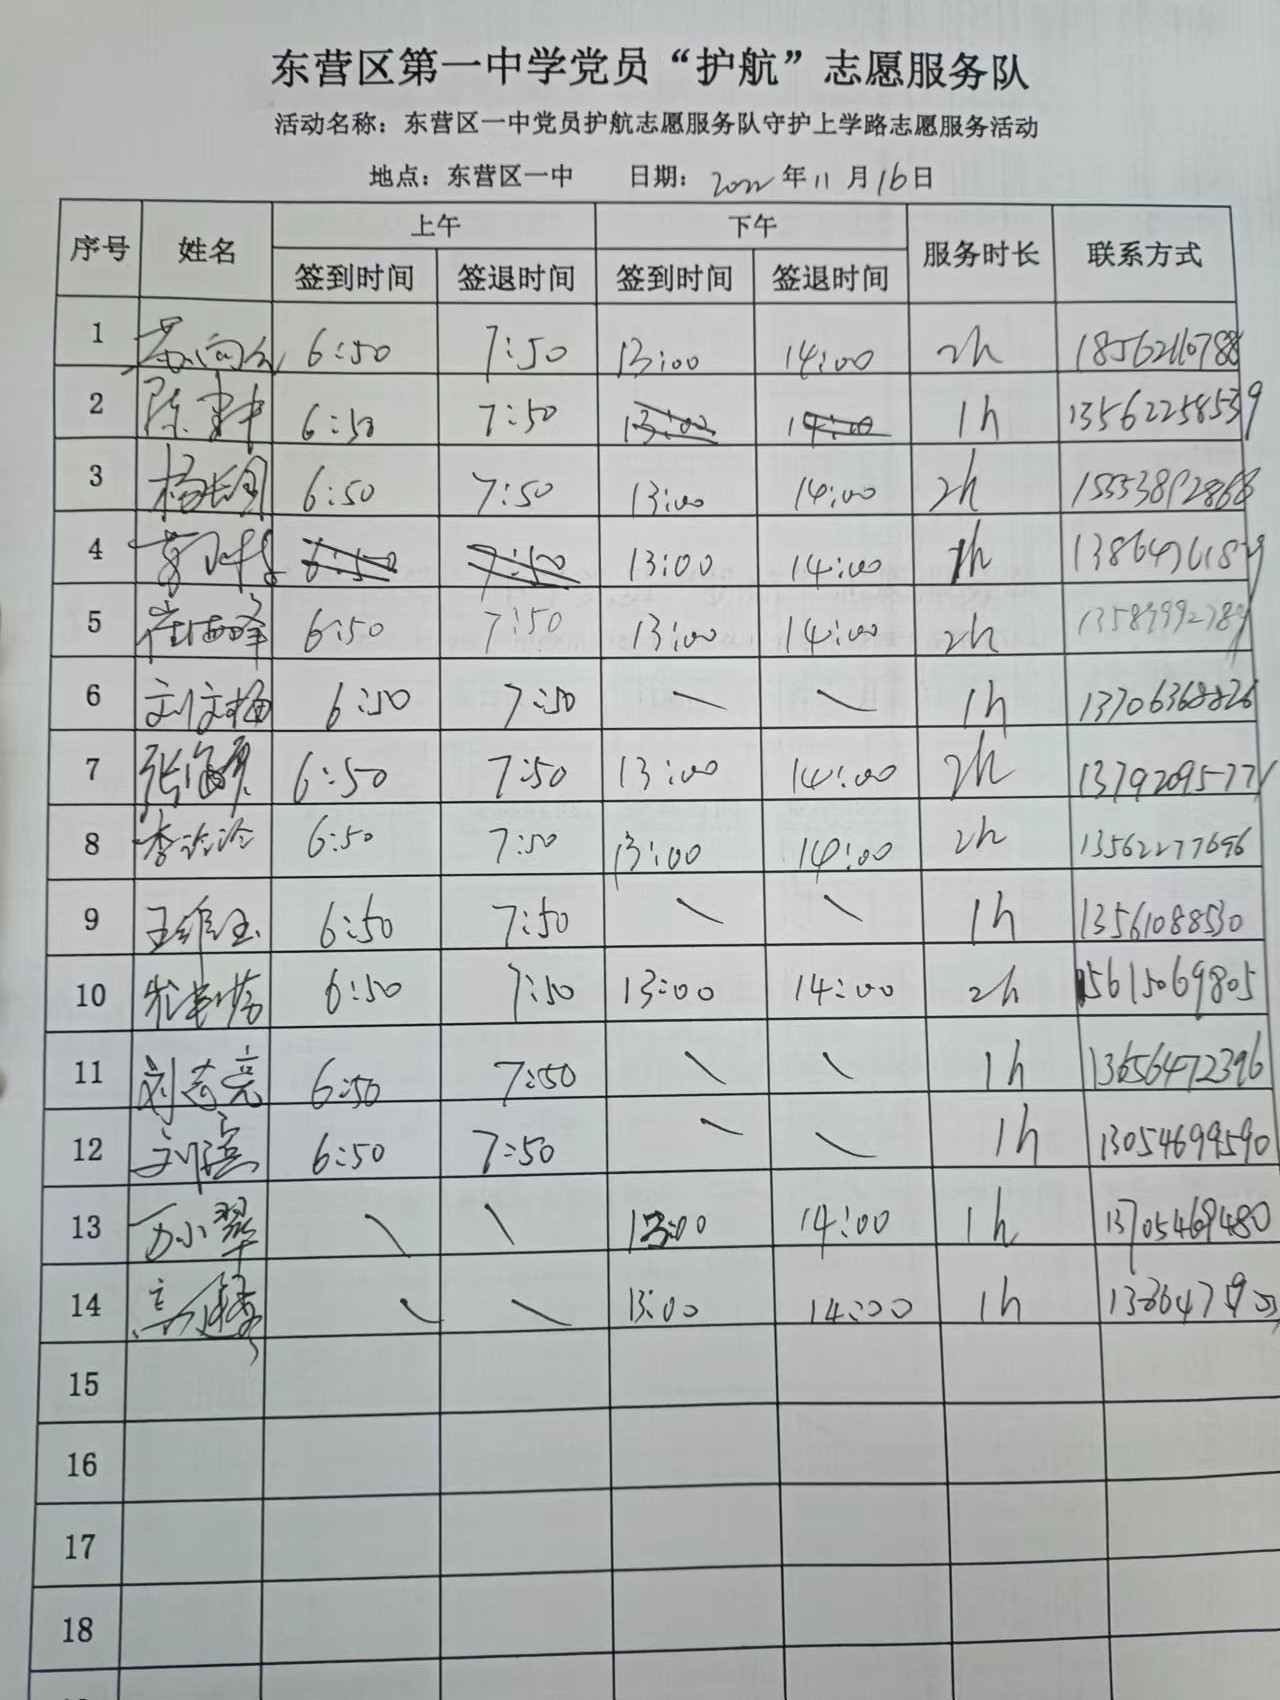 东营区第一中学党员“护航”志愿服务队
活动名称：东营区一中党员护航志愿服务队守护上学路志愿服务活动
地点：东营区一中 日期：2022年11月16日
序号 姓名 上午 下午 服务时长 联系方式
签到时间 签退时间 签到时间 签退时间
1 6:50 7:50 13:00 14:00 2h
2 陈建中 6:50 7:50 13:00 14:00 1h 13562258539
3 6:50 7:50 13:00 14:00 2h 15553892868
4 6:50 7:50 13:00 14:00 1h
5 崔海峰 6:50 7:50 13:00 14:00 2h 13589992789
6 刘文梅 6:50 7:50 \ \ 1h 13706368826
7 6:50 7:50 13:00 14:00 2h
8 李泠泠 6:50 7:50 13:00 14:00 2h 13562277696
9 王维玉 6:50 7:50 \ \ 1h 13561088530
10 6:50 7:50 13:00 14:00 2h 15615069805
11 刘志亮 6:50 7:50 \ \ 1h 13656472396
12 刘滨 6:50 7:50 \ \ 1h 13054699590
13 万小翠 \ \ 13:00 14:00 1h 13705469480
14 \ \ 13:00 14:00 1h
15
16
17
18